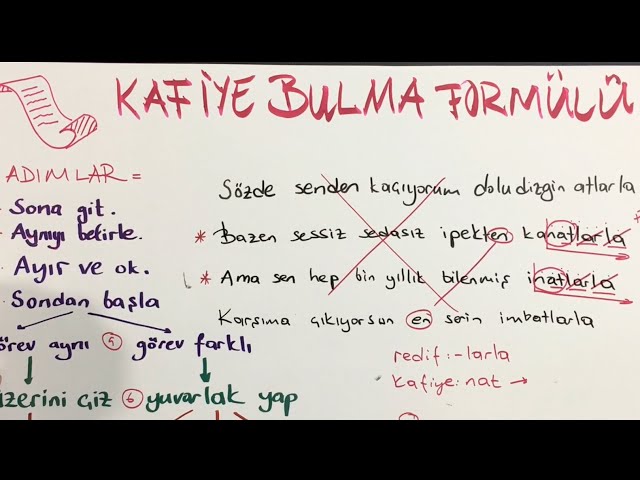 KAFİYE BULMA FORMÜLÜ
ADIMLAR =
Sona git.
Aynıyı belirle.
Ayır ve ok.
Sondan başla
görev aynı 5 görev farklı
üzerini çiz 6 yuvarlak yap
Sözde senden kaçıyorum doludizgin atlarla
* Bazen sessiz sedasız ipekten kanatlarla *
* Ama sen hep bin yıllık bilenmiş inatlarla
Karşıma çıkıyorsun en serin imbatlarla
redif: -larla
kafiye: nat →